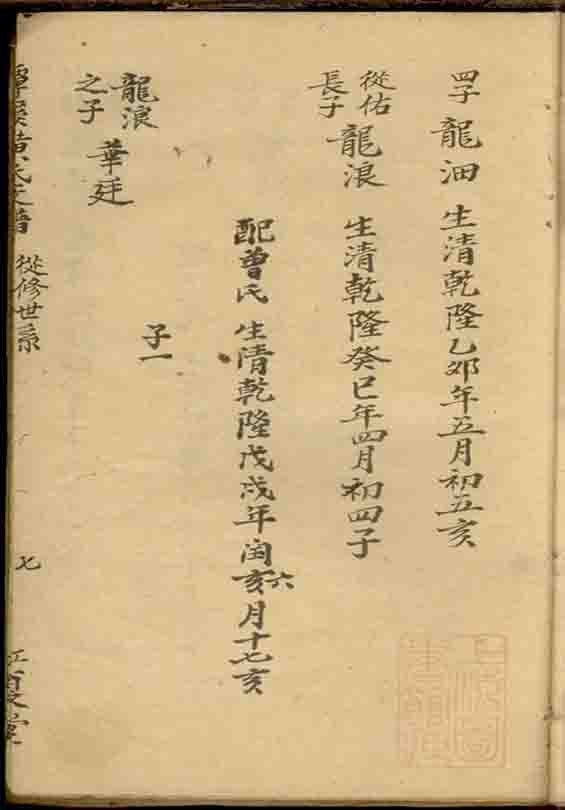 四子 龍沺 生清乾隆乙卯年五月初五亥
從佑長子 龍浪 生清乾隆癸巳年四月初四子
配曾氏 生清乾隆戊戌年閏六亥月十七亥
子一
龍浪之子 華廷
黃氏支譜 從修世系 七